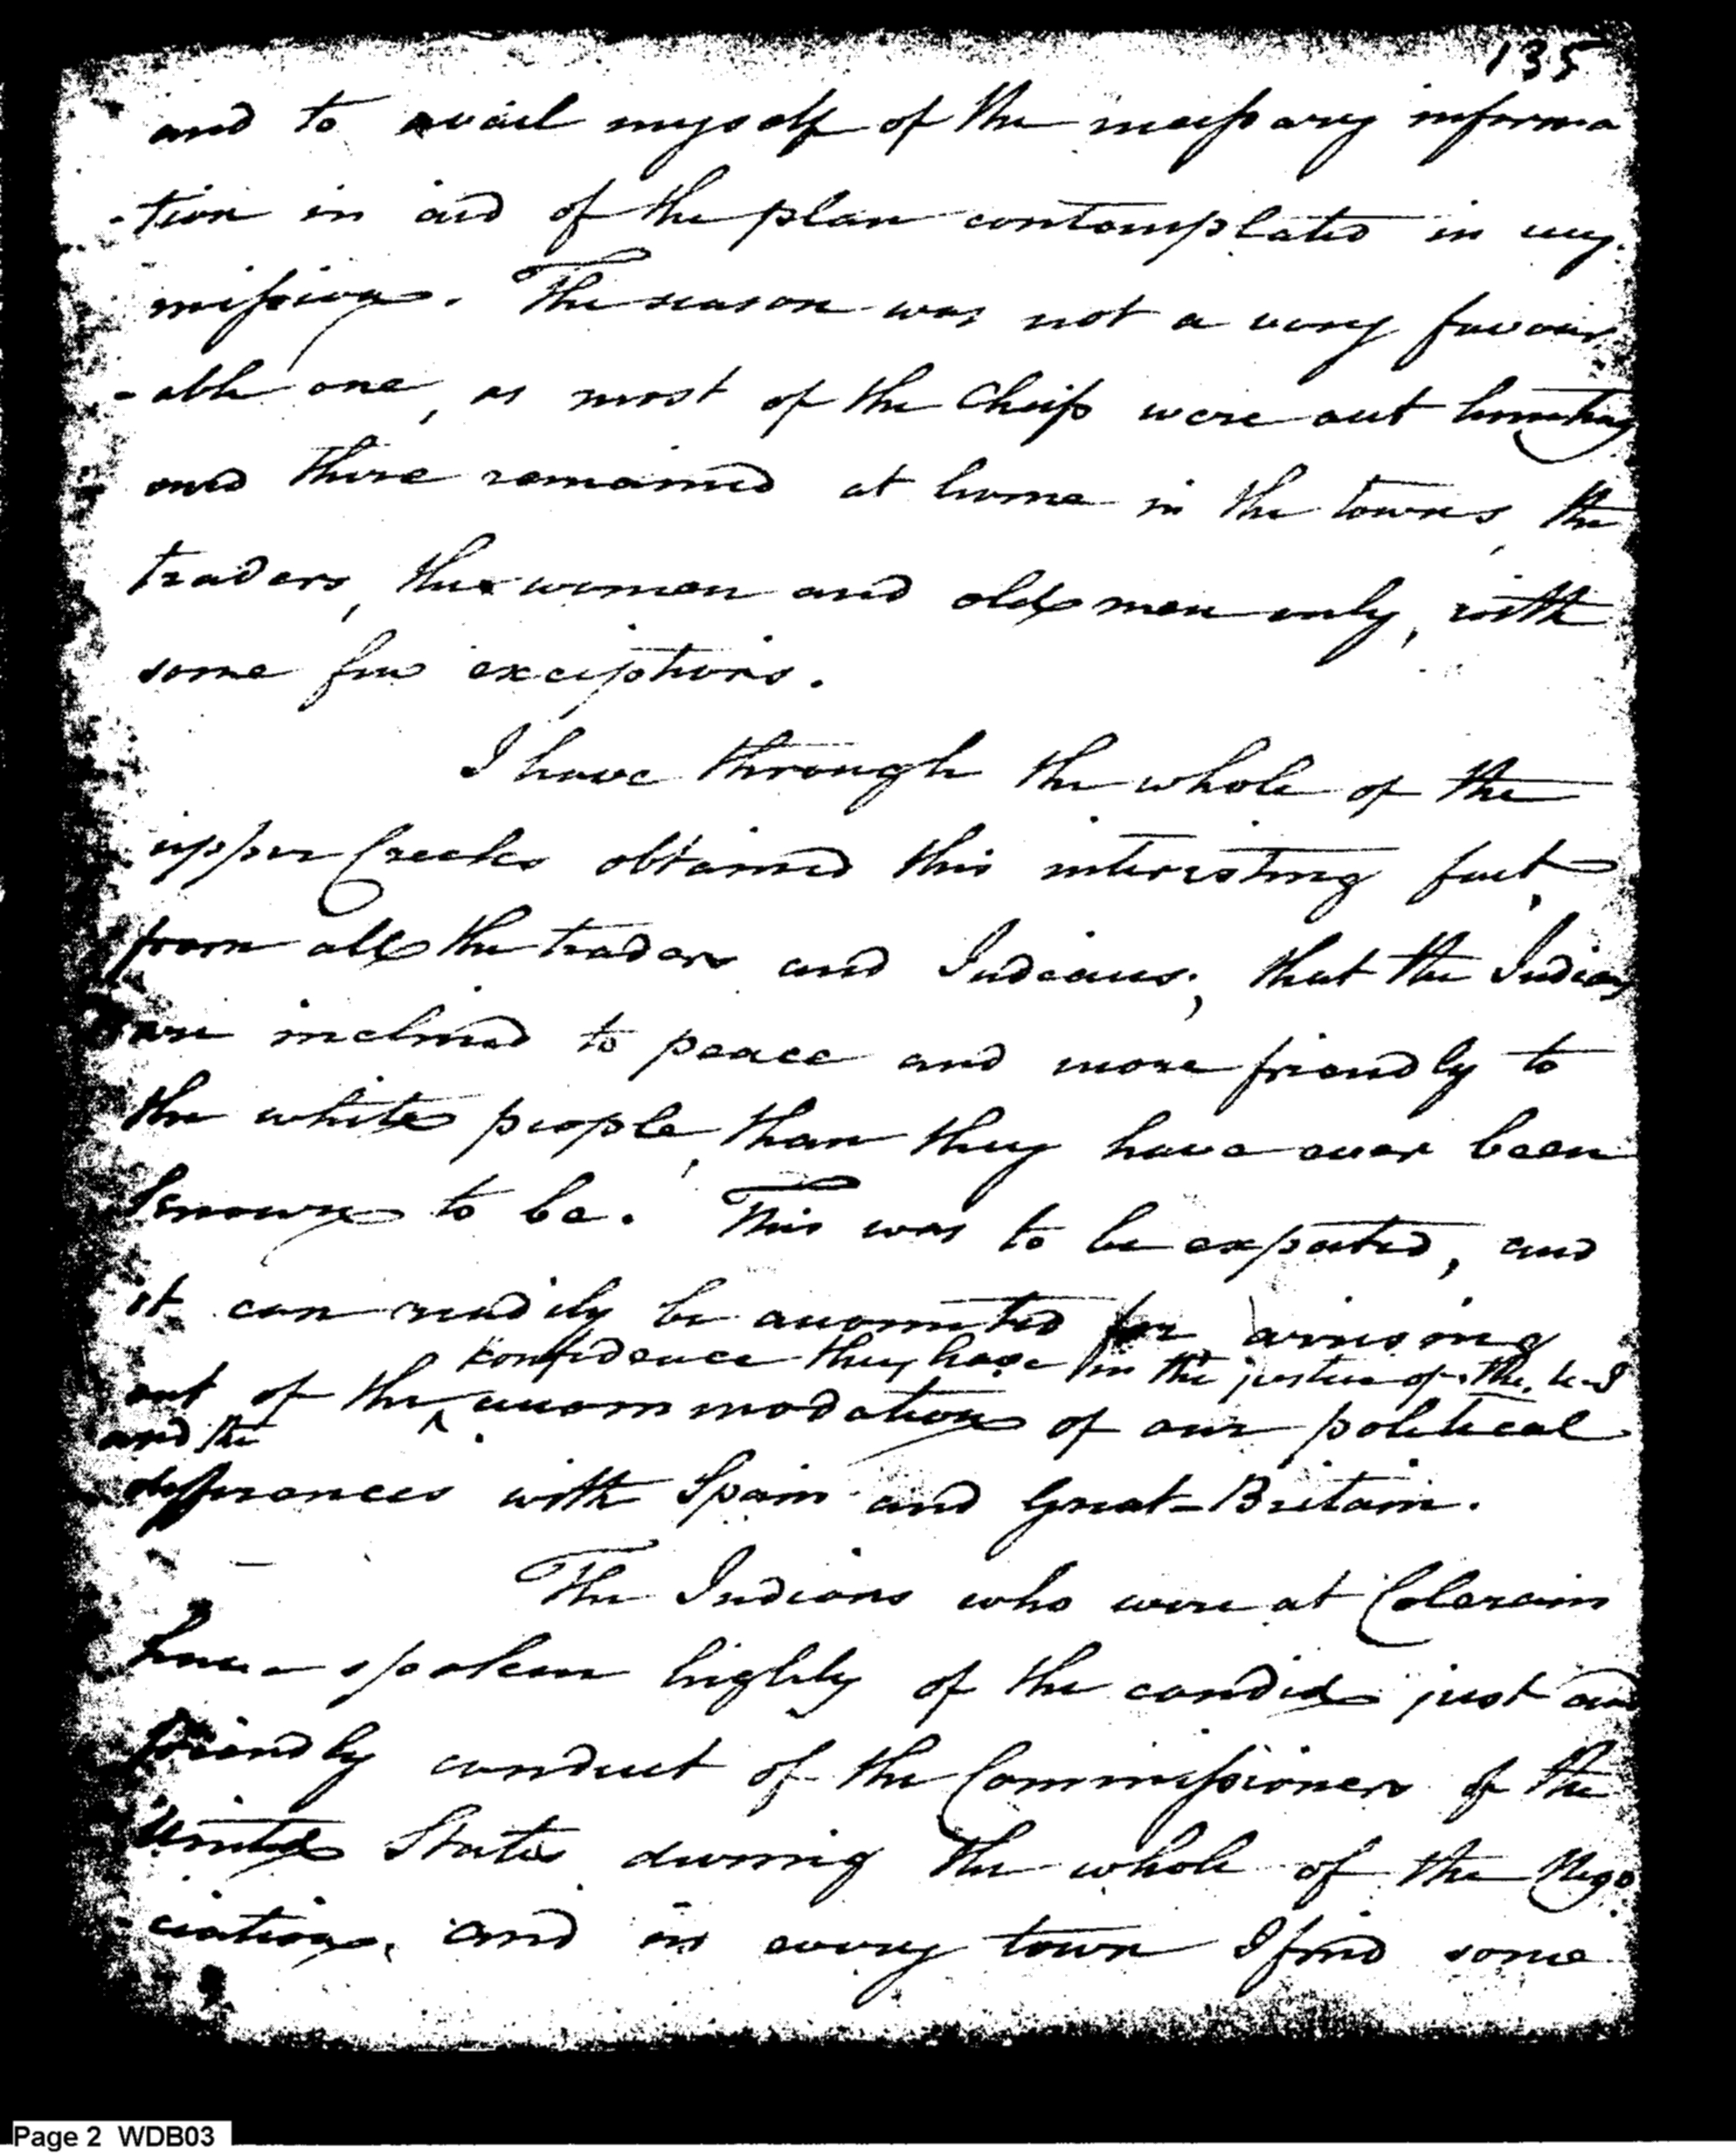 135
and to avail myself of the necessary informa
-tion in aid of the plan contemplated in my
mission. The season was not a very favour
-able one, as most of the Cheifs were out hunting
and there remained at home in the towns, the
traders, the women and old men only, with
some few exceptions.
I have through the whole of the
upper Creeks obtained this interesting fact,
from all the traders and Indians; that the Indians
are inclined to peace and more friendly to
the white people, than they have ever been
known to be. This was to be expected, and
it can readily be accounted for arrising
confidence they have in the justice of the U.S
out of the ^ accommodation of our political
and the
differances with Spain and Great-Britain.
The Indians who were at Colerain
have spoken highly of the candid just and
friendly conduct of the Commissioners of the
United States during the whole of the Nego
-ciation, and in every town I find some
Page 2 WDB03